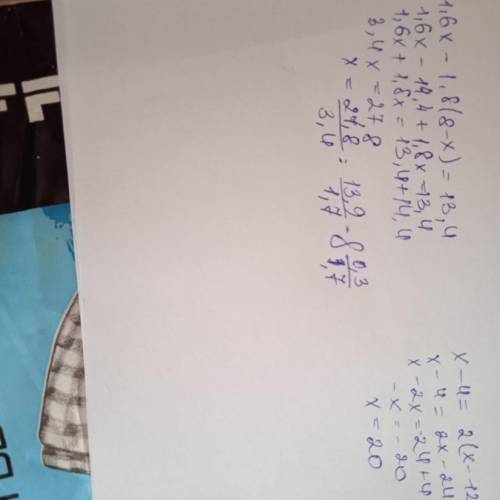 1,6x - 1,8(8-x) = 13,4
1,6x - 14,4 + 1,8x = 13,4
1,6x + 1,8x = 13,4 + 14,4
3,4x = 27,8
x = 27,8/3,4 = 13,9/1,7 = 8 0,3/1,7
x - 4 = 2(x - 12
x - 4 = 2x - 24
x - 2x = -24 + 4
-x = -20
x = 20